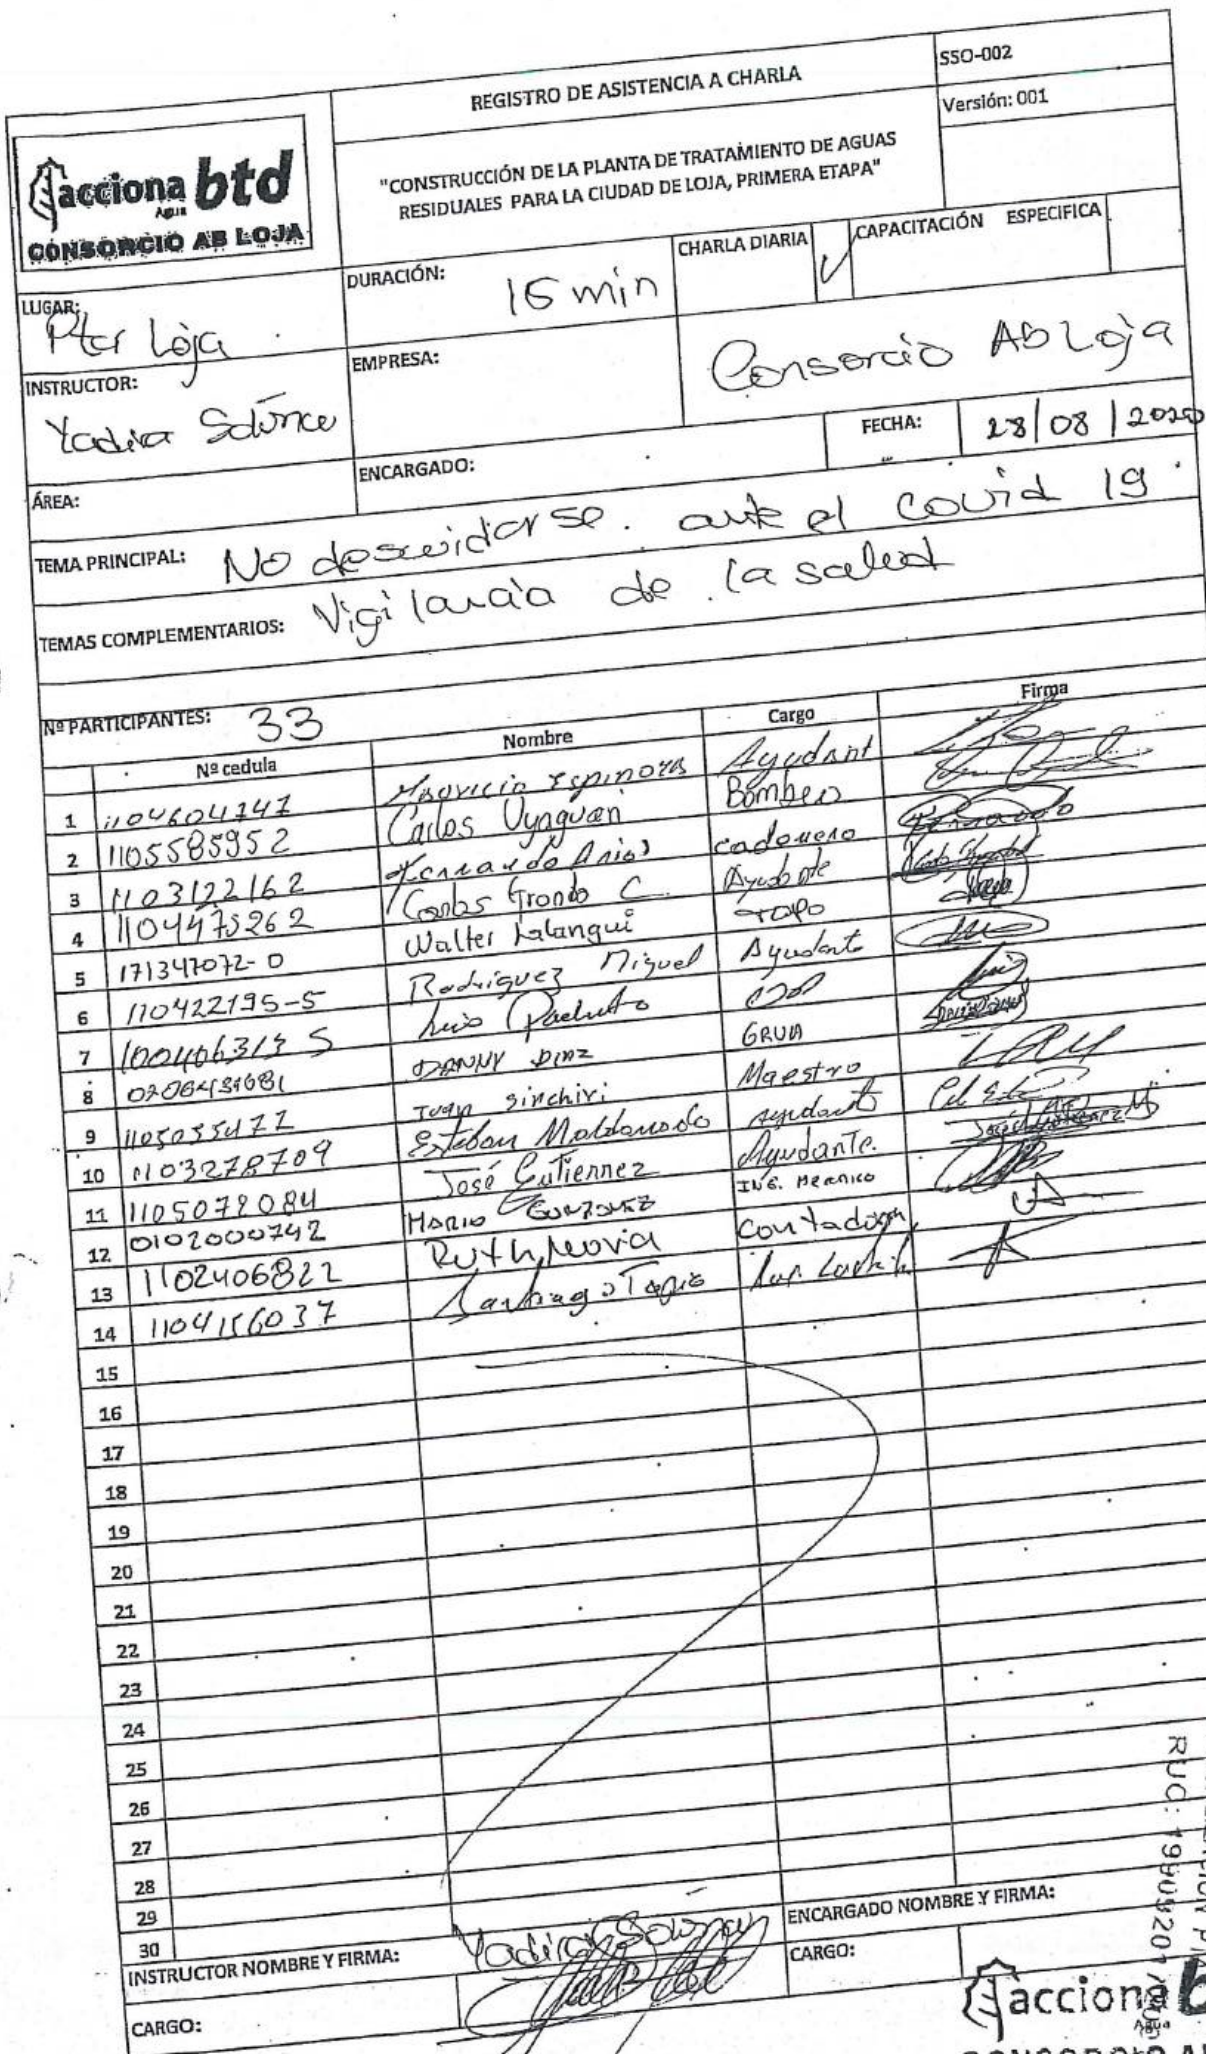 acciona btd
Agua
CONSORCIO AB LOJA
REGISTRO DE ASISTENCIA A CHARLA
SSO-002
Versión: 001
"CONSTRUCCIÓN DE LA PLANTA DE TRATAMIENTO DE AGUAS
RESIDUALES PARA LA CIUDAD DE LOJA, PRIMERA ETAPA"
LUGAR: Ptar Loja
DURACIÓN: 15 min
CHARLA DIARIA
CAPACITACIÓN ESPECIFICA
INSTRUCTOR: Yadira
EMPRESA: Consorcio AB Loja
ÁREA:
ENCARGADO:
FECHA: 28/08/2020
TEMA PRINCIPAL: No descuidarse. ante el Covid 19
TEMAS COMPLEMENTARIOS: Vigilancia de la salud
Nº PARTICIPANTES: 33
Nº cedula Nombre Cargo Firma
1 1104604747 Mauricio Espinoza Ayudant
2 1105585952 Carlos Uyaguan Bombero
3 1103122162 Fernando Arias cadenero
4 1104475262 Carlos Grondo C. Ayudante
5 171347072-0 Walter Lalangui TOPO
6 110422195-5 Rodriguez Miguel Ayudante
7 100406313 5 Luis
8 DANNY DIAZ GRUA
9 1105035477 Juan Sinchiri Maestro
10 1103278709 Esteban Maldonado Ayudante
11 1105078084 José Gutierrez Ayudante.
12 0102000742 MARIO GONZALEZ ING. MECANICO
13 1102406822 Ruth Neovia Contadora
14 1104156037 Santiago Tapia
15
16
17
18
19
20
21
22
23
24
25
26
27
28
29
30
INSTRUCTOR NOMBRE Y FIRMA: Yadira
ENCARGADO NOMBRE Y FIRMA:
CARGO:
CARGO:
acciona b
Agua
RUC: